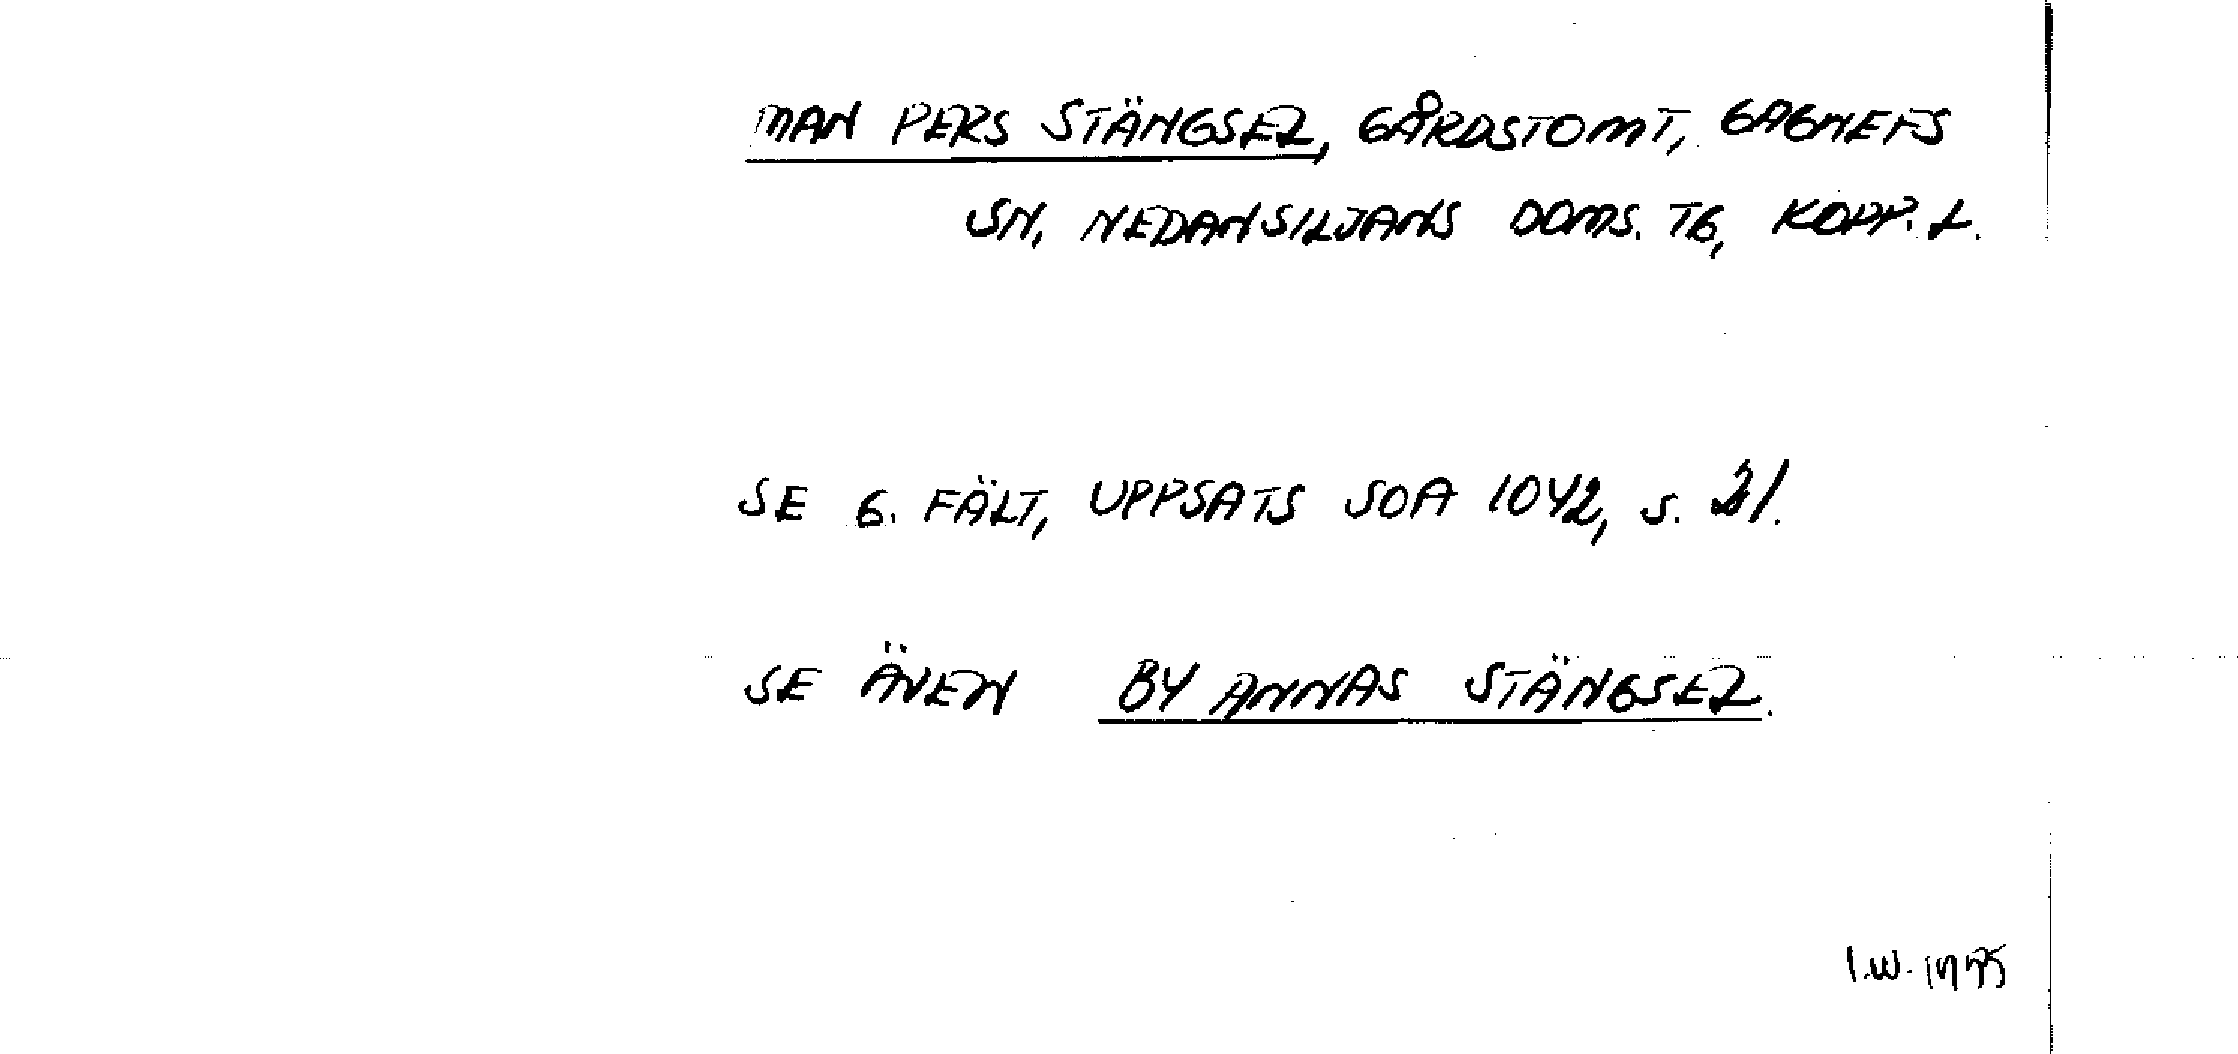 MAN PERS STÄNGSEL, GÅRDSTOMT, GAGNEFS
SN, NEDANSILJANS DOMS. TG, KOPP. L.
SE G. FÄLT, UPPSATS SOA 1042, S. 21.
SE ÄVEN BY ANNAS STÄNGSEL.
I.W.